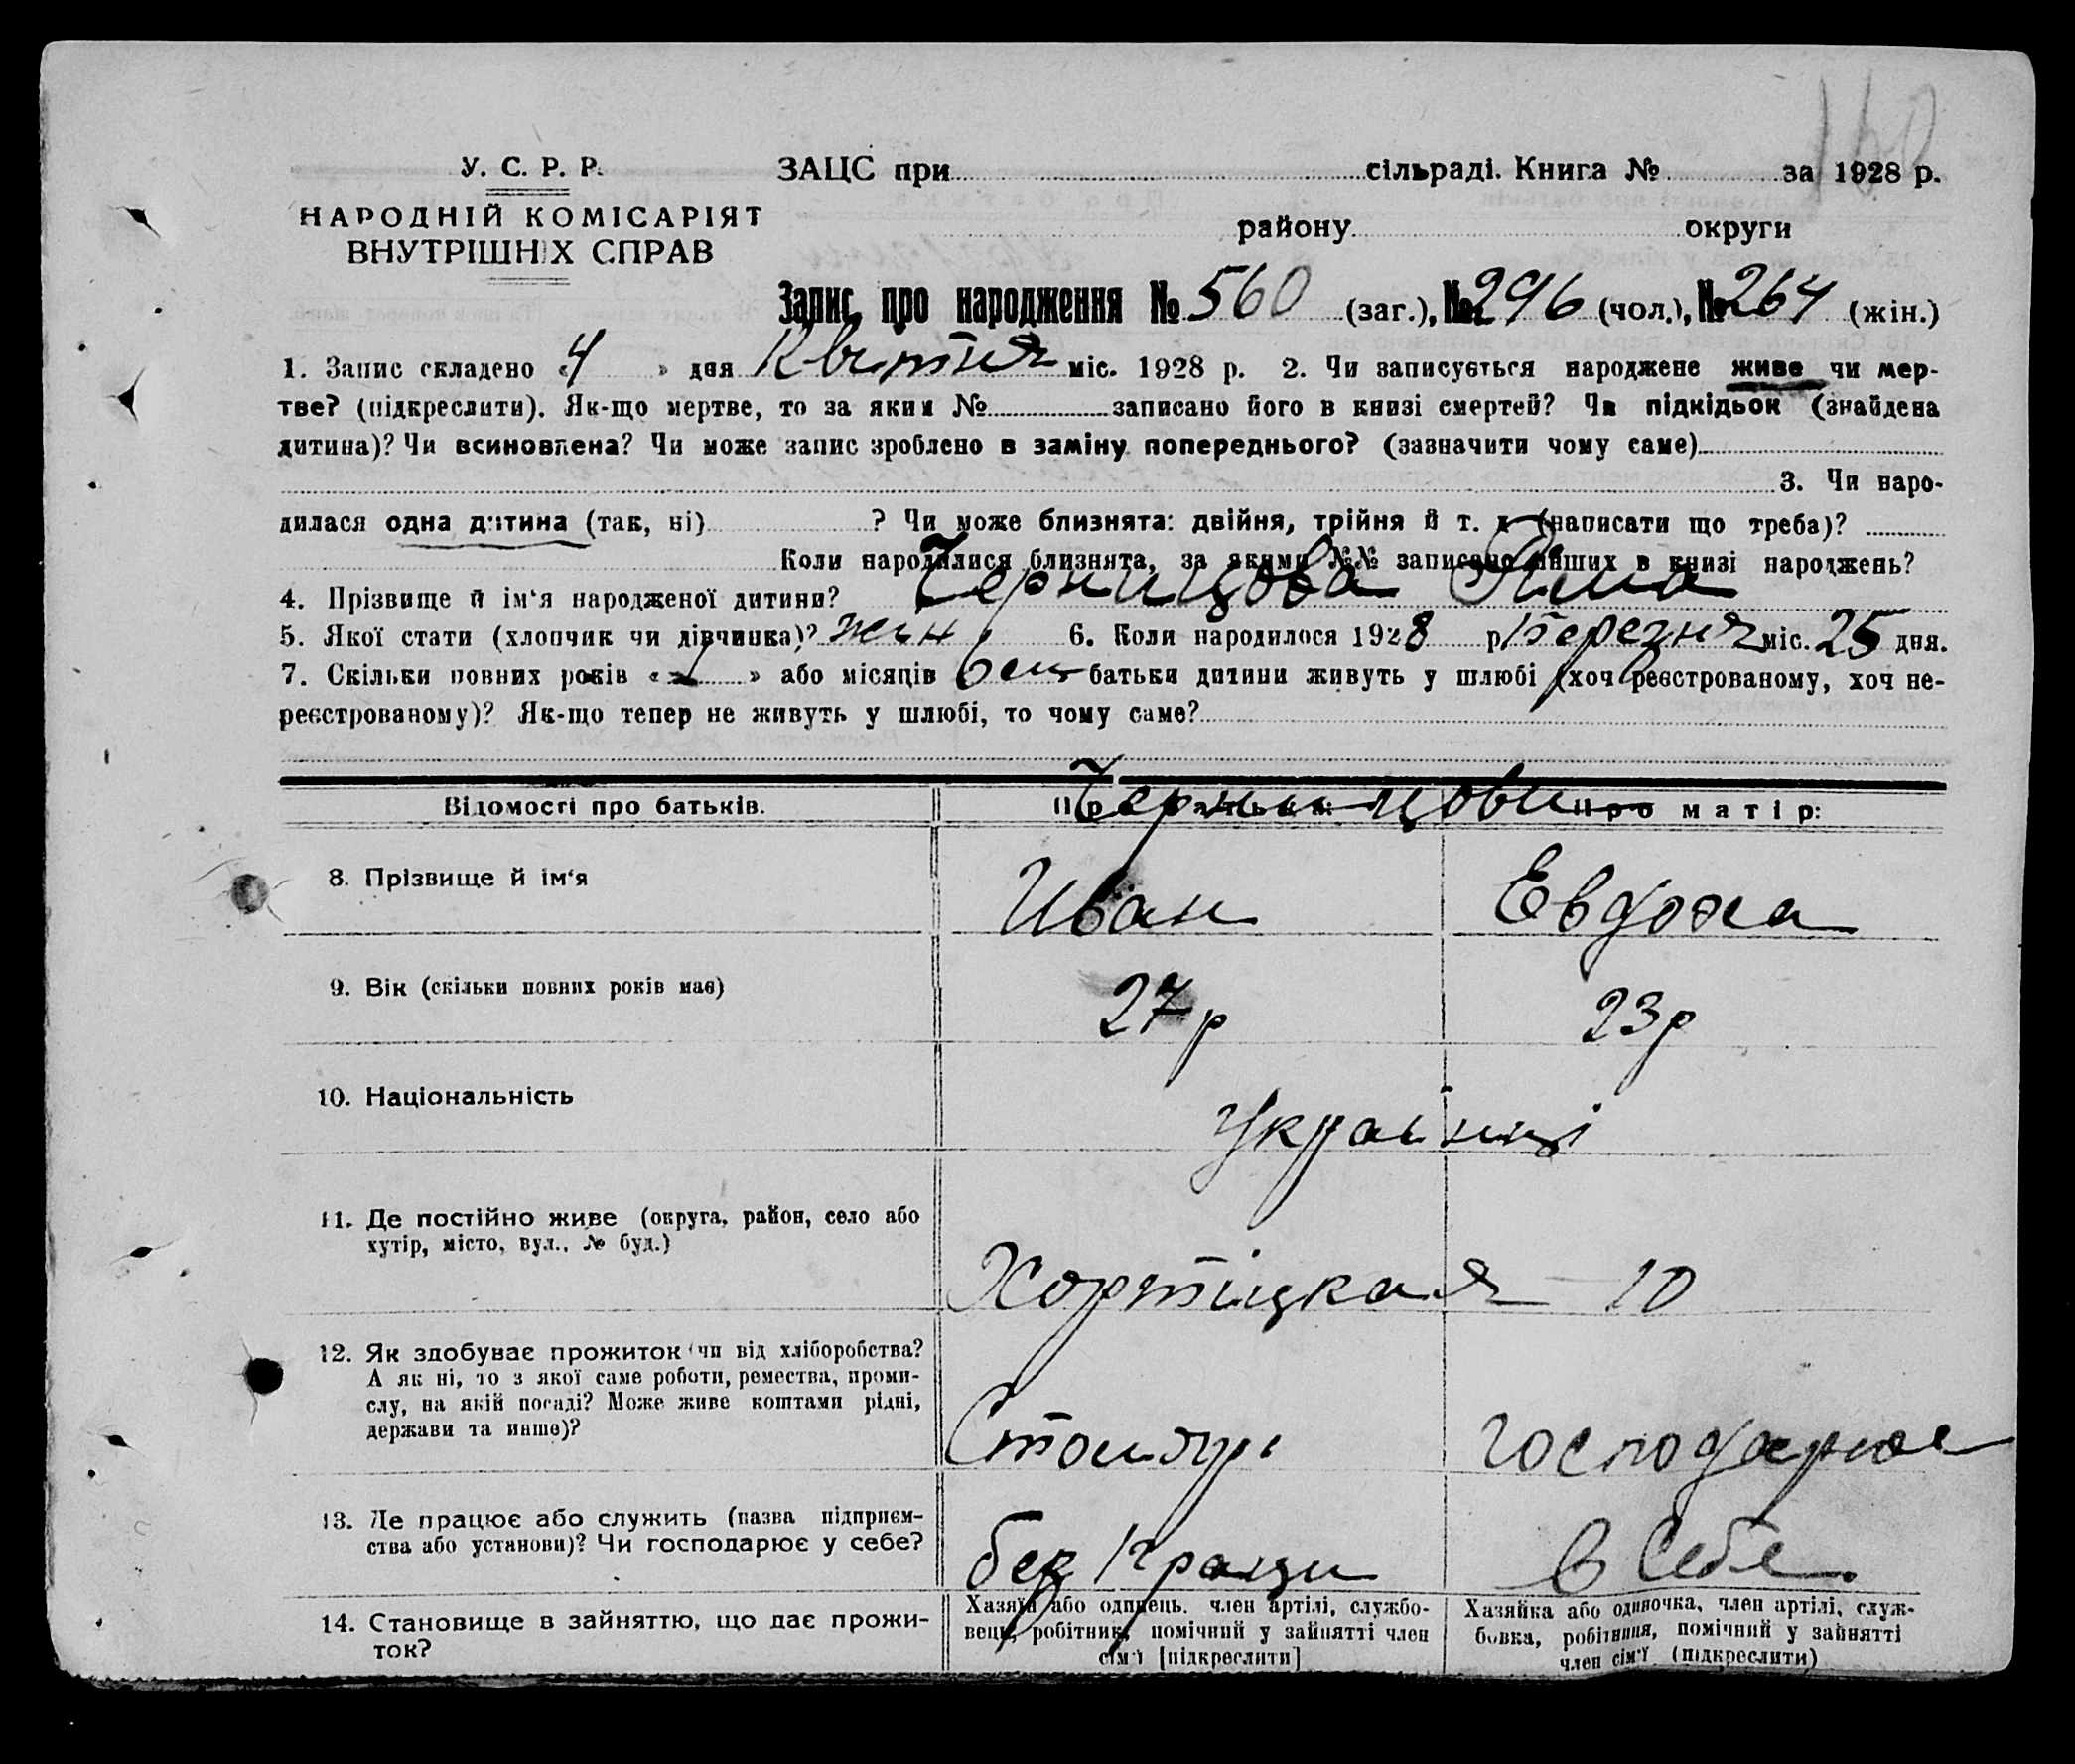 160
У. С. Р. Р.
ЗАЦС при сільраді. Книга № за 1928 р.
НАРОДНІЙ КОМІСАРІЯТ
ВНУТРІШНІХ СПРАВ
району округи
Запис про народження № 560 (заг.), № 296 (чол.), № 264 (жін.)
1. Запис складено « 4 » дня Квітня міс. 1928 р. 2. Чи записується народжене живе чи мер-
тве? (підкреслити). Як-що мертве, то за яким № записано його в книзі смертей? Чи підкідьок (знайдена
дитина)? Чи всиновлена? Чи може запис зроблено в заміну попереднього? (зазначити чому саме)
3. Чи наро-
дилася одна дитина (так, ні) ? Чи може близнята: двійня, трійня й т. д. (написати що треба)?
Коли народилися близнята, за якими №№ записано інших в книзі народжень?
4. Прізвище й ім'я народженої дитини? Черницова Рима
5. Якої стати (хлопчик чи дівчинка)? жін 6. Коли народилося 1928 р. Березня міс. 25 дня.
7. Скільки повних років « » або місяців батьки дитини живуть у шлюбі (хоч реєстрованому, хоч не-
реєстрованому)? Як-що тепер не живуть у шлюбі, то чому саме?
Відомості про батьків. Про матір:
8. Прізвище й ім'я Иван Евдоха
9. Вік (скільки повних років має) 27 р 23 р
10. Національність Українці
11. Де постійно живе (округа, район, село або
хутір, місто, вул., № буд.)
Хортіцкая 10
12. Як здобуває прожиток (чи від хліборобства?
А як ні, то з якої саме роботи, ремества, проми-
слу, на якій посаді? Може живе коштами рідні,
держави та инше)?
Столяр господарює
13. Де працює або служить (назва підприєм-
ства або установи)? Чи господарює у себе?
без Праци в Себе.
14. Становище в зайняттю, що дає прожи-
ток?
Хазяїн або одинець, член артілі, службо-
вець, робітник, помічний у зайнятті член
сім'ї [підкреслити]
Хазяйка або одиночка, член артілі, служ-
бовка, робітниця, помічний у зайнятті
член сім'ї (підкреслити)